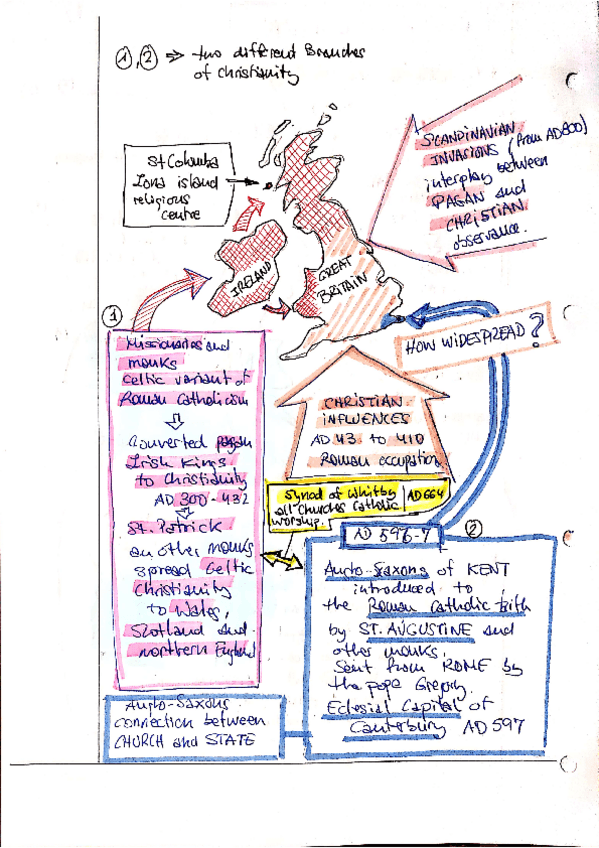 ①,② ⇒ two different Branches
of Christianity
St Columba
Iona island
religious
centre
SCANDINAVIAN
INVASIONS (from AD800)
interplay between
PAGAN and
CHRISTIAN
observance.
IRELAND
GREAT
BRITAIN
HOW WIDESPREAD?
①
Missionaries and
monks
Celtic variant of
Roman Catholicism
⇩
Converted pagan
Irish Kings
to Christianity
AD 300-432
St. Patrick
an other monks
spread Celtic
Christianity
to Wales,
Scotland and
northern England
CHRISTIAN
INFLUENCES
AD 43 to 410
Roman occupation
Synod of Whitby AD 664
all Churches Catholic
worship.
②
AD 596-7
Anglo-Saxons of KENT
introduced to
the Roman Catholic faith
by ST. AUGUSTINE and
other monks.
Sent from ROME by
the pope Gregory.
Eclesial Capital of
Canterbury AD 597
Anglo-Saxons
connection between
CHURCH and STATE